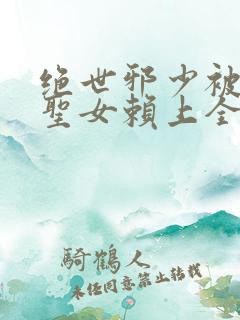 绝世邪少被
聖女賴上全
騎鶴人
未经同意禁止转载